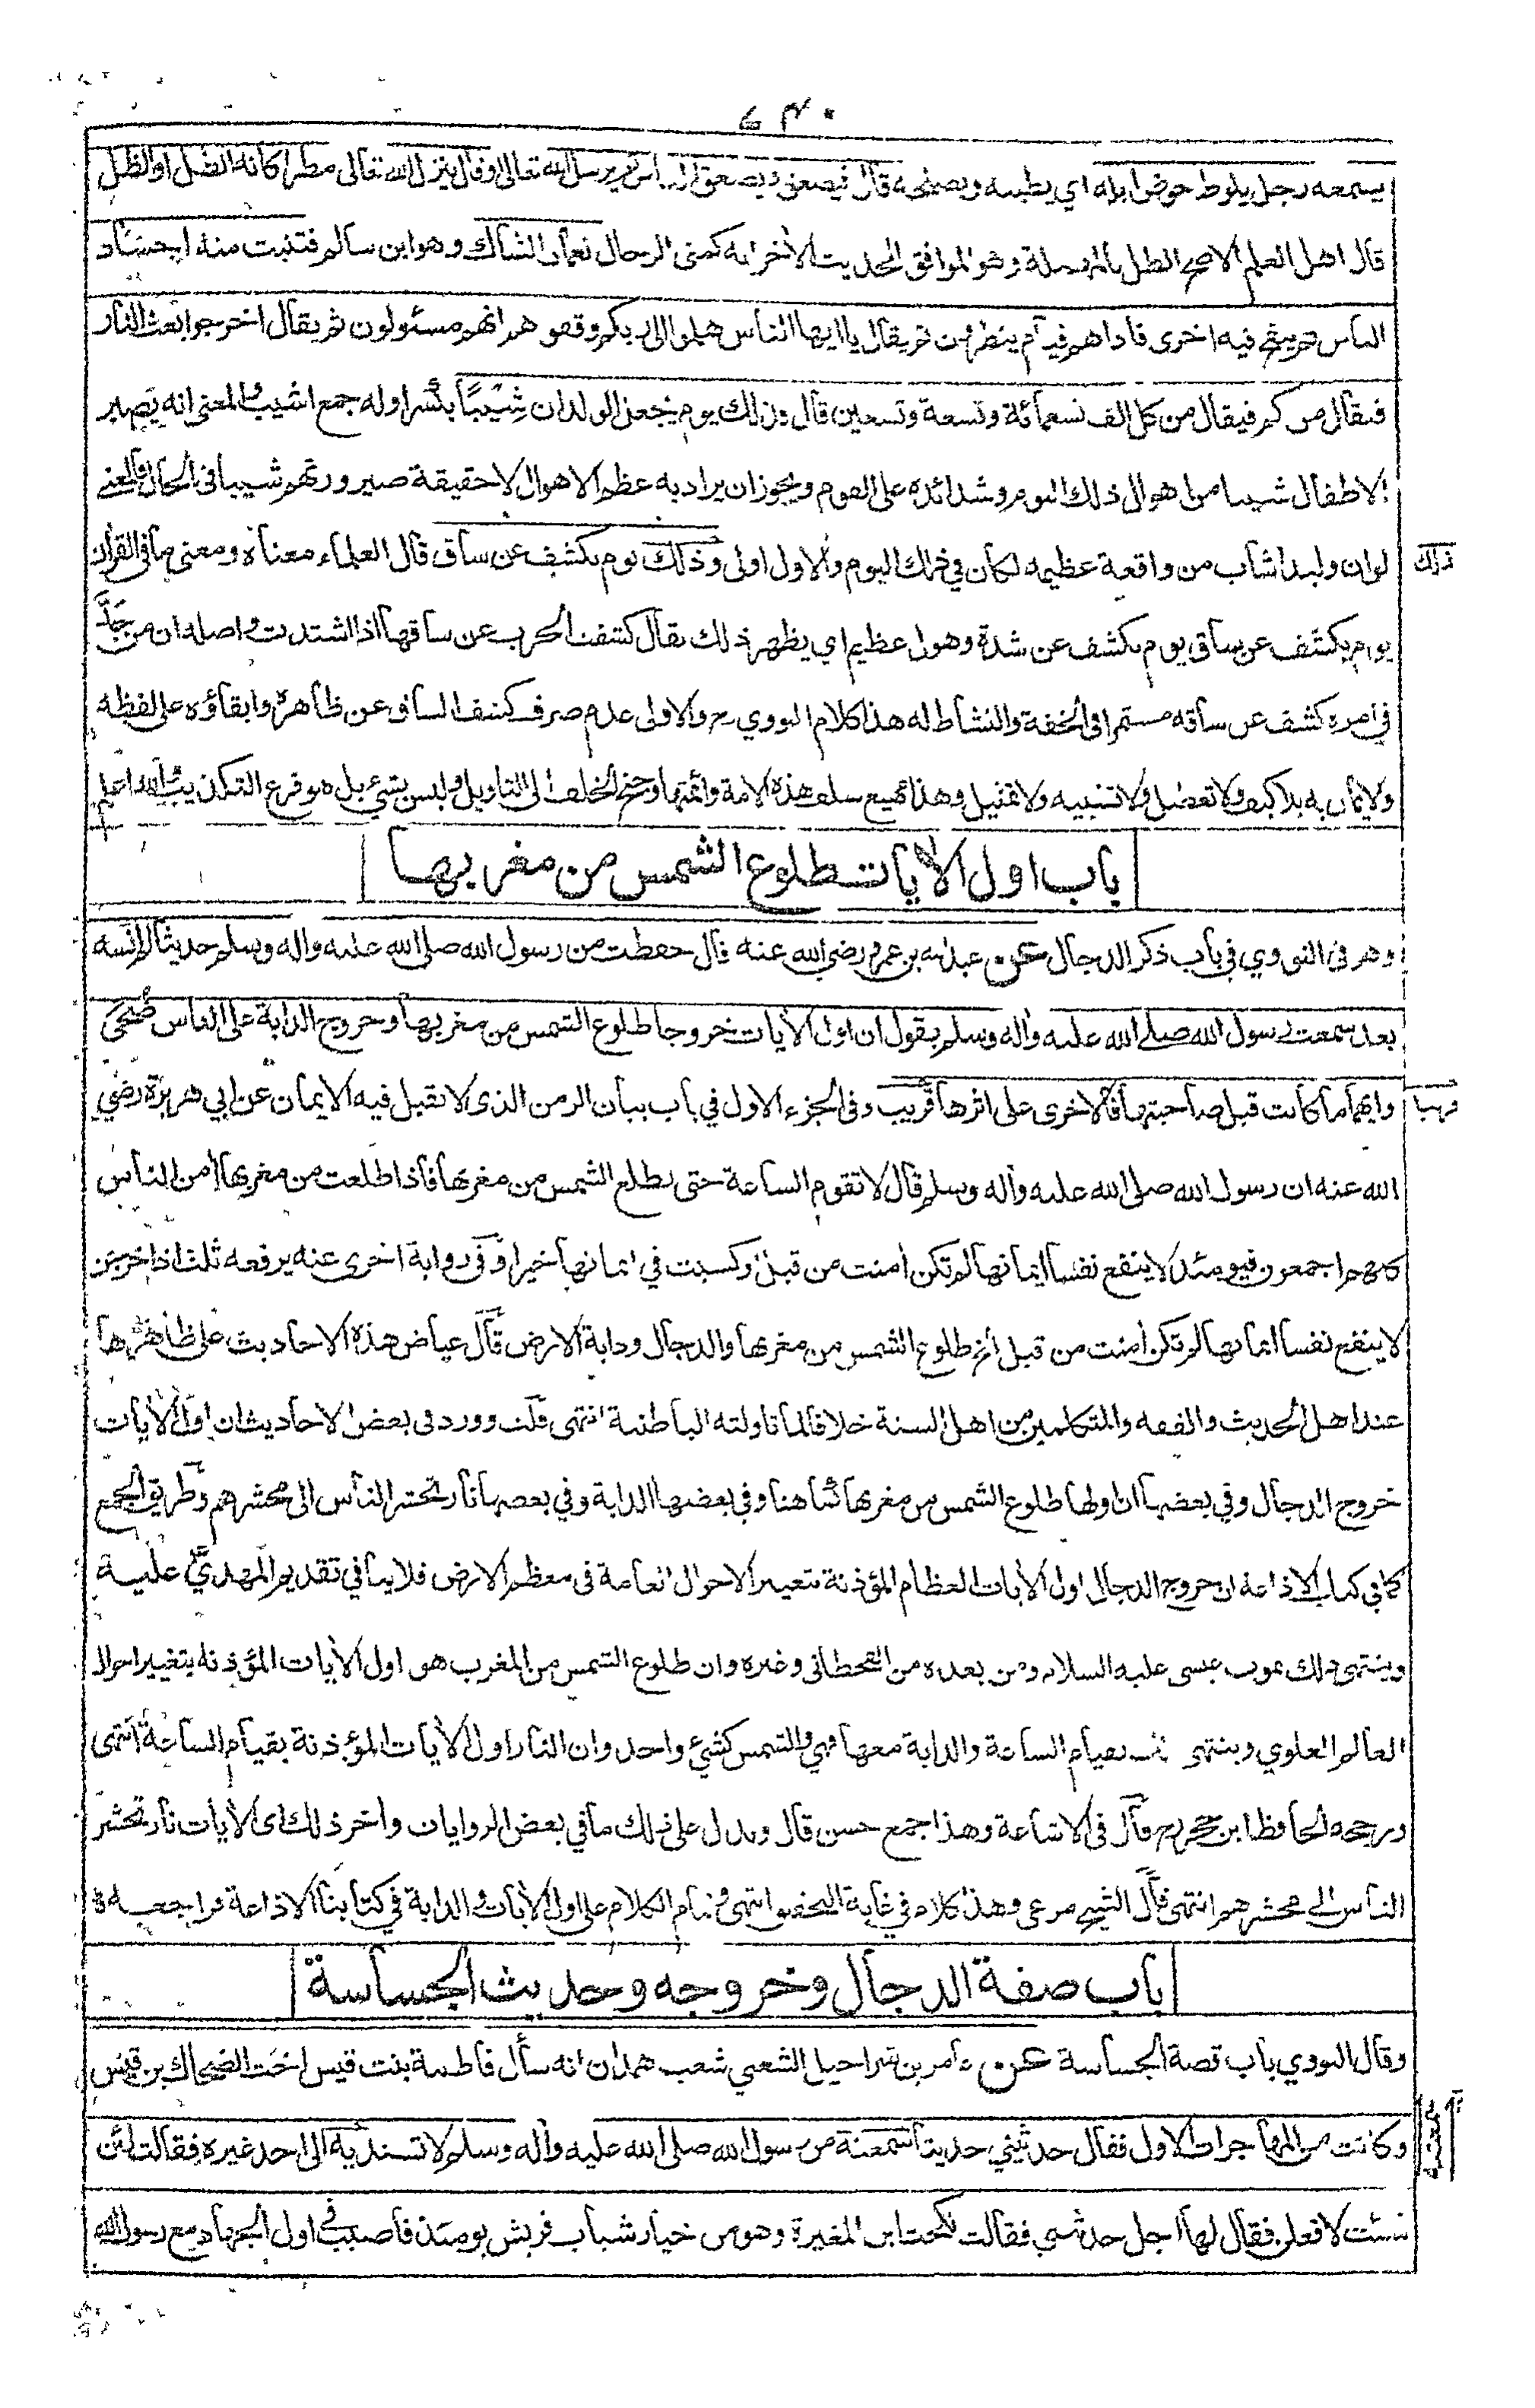 ٦٣٠
يسمعه رجل يلوط حوض ابله اي يطينه ويصلحه قال فيصعق ويصعق الناس ثم يرسل الله تعالى او قال ينزل الله تعالى مطرا كانه الطل او الظل
قال اهل العلم الاصح الطل بالمهملة وهو الموافق للحديث الآخر انه كمنى الرجال نعمان الشاك وهو ابن سالم فتنبت منه اجساد
الناس ثم ينفخ فيه اخرى فاذا هم قيام ينظرون ثم يقال يا ايها الناس هلموا الى ربكم وقفوهم انهم مسئولون ثم يقال اخرجوا بعث النار
فيقال من كم فيقال من كل الف تسعمائة وتسعة وتسعين قال وذلك يوم يجعل الولدان شِيْبًا بكسر اوله جمع اشيب والمعنى انه يصير
الاطفال شيبا من اهوال ذلك اليوم وشدائده على القوم ويجوز ان يراد به عظم الاهوال لا حقيقة صيرورتهم شيبا في الحال والمعنى
لو ان وليدا شاب من واقعة عظيمه لكان في ذلك اليوم والاول اولى وذلك يوم يكشف عن ساق قال العلماء معناه ومعنى ما في القرآن
ذلك
يوم يكشف عن ساق يوم يكشف عن شدة وهول عظيم اي يظهر ذلك يقال كشفت الحرب عن ساقها اذا اشتدت واصله ان من جَدَّ
في امره كشف عن ساقه مستمرا في الخفة والنشاط له هذا كلام النووي رح والاولى عدم صرف كشف الساق عن ظاهره وابقاؤه على لفظه
والايمان به بلا كيف ولا تعطيل ولا تشبيه ولا تمثيل وهذا جميع سلف هذه الامة وائمتها وجنح الخلف الى التاويل وليس بشيء بل هو فرع التكذيب والله اعلم
باب اول الآيات طلوع الشمس من مغربها
وهو في النووي في باب ذكر الدجال عن عبد الله بن عمرو رضي الله عنه قال حفظت من رسول الله صلى الله عليه واله وسلم حديثا لم انسه
بعد سمعت رسول الله صلى الله عليه وآله وسلم يقول ان اول الآيات خروجا طلوع الشمس من مغربها وخروج الدابة على الناس ضحى
وايهما ما كانت قبل صاحبتها فالاخرى على اثرها قريب وفي الجزء الاول في باب بيان الزمن الذي لا تقبل فيه الايمان عن ابي هريرة رضي
قريبا
الله عنه ان رسول الله صلى الله عليه وآله وسلم قال لا تقوم الساعة حتى تطلع الشمس من مغربها فاذا طلعت من مغربها آمن الناس
كلهم اجمعون فيومئذ لا ينفع نفسا ايمانها لم تكن آمنت من قبل او كسبت في ايمانها خيرا وفي رواية اخرى عنه يرفعه ثلث اذا خرجن
لا ينفع نفسا ايمانها لم تكن آمنت من قبل الخ طلوع الشمس من مغربها والدجال ودابة الارض قال عياض هذه الاحاديث على ظاهرها
عند اهل الحديث والفقه والمتكلمين من اهل السنة خلافا لما تاولته الباطنية انتهى قلت وورد في بعض الاحاديث ان اول الآيات
خروج الدجال وفي بعضها ان اولها طلوع الشمس من مغربها كما هنا وفي بعضها الدابة وفي بعضها نار تحشر الناس الى محشرهم وطريق الجمع
كما في كتاب الاذاعة ان خروج الدجال اول الآيات العظام المؤذنة بتغيير الاحوال العامة في معظم الارض فلا ينافي تقديم المهدي عليه
وينتهي ذلك بموت عيسى عليه السلام ومن بعده من القحطاني وغيره وان طلوع الشمس من المغرب هو اول الآيات المؤذنة بتغيير احوال
العالم العلوي وينتهي ذلك بقيام الساعة والدابة معها فهي والشمس كشيء واحد وان النار اول الآيات المؤذنة بقيام الساعة انتهى
ورجحه الحافظ ابن حجر رح قال في الاشاعة وهذا جمع حسن قال ويدل على ذلك ما في بعض الروايات وآخر ذلك اى الآيات نار تحشر
الناس الى محشرهم انتهى قال الشيخ مرعي وهذا كلام في غاية التحقيق انتهى وتمام الكلام على اول الآيات والدابة في كتابنا الاذاعة فراجعه
باب صفة الدجال وخروجه وحديث الجساسة
وقال النووي باب قصة الجساسة عن عامر بن شراحيل الشعبي شعب همدان انه سأل فاطمة بنت قيس اخت الضحاك بن قيس
وكانت من المهاجرات الاول فقال حدثيني حديثا سمعته من رسول الله صلى الله عليه وآله وسلم لا تسنديه الى احد غيره فقالت لئن
شئت لافعلن فقال لها اجل حدثيني فقالت نكحت ابن المغيرة وهو من خيار شباب قريش يومئذ فاصيب في اول الجهاد مع رسول الله